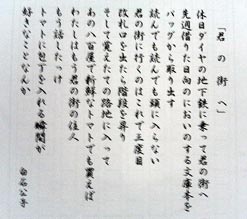 「君の街へ」
休日ダイヤの地下鉄に乗って君の街へ
先週借りた日向のにおいのする文庫本を
バッグから取り出す
読んでも読んでも頭に入らない
君の街に行くのはこれで三度目
改札口を出たら階段を昇り
そして覚えたての路地に入って
あの八百屋で新鮮なトマトでも買えば
わたしはもう君の街の住人
もう話したっけ
トマトに包丁を入れる瞬間が
好きなことなんか